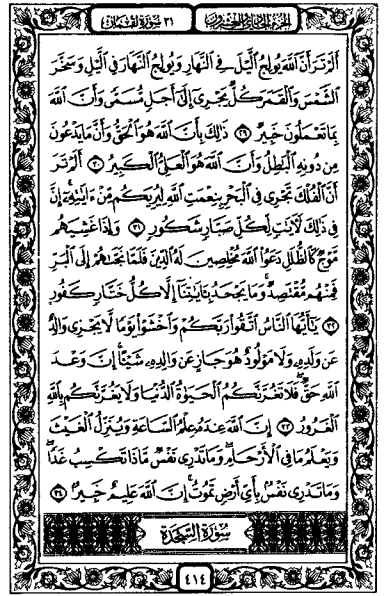 الجزء الحادي والعشرون ٣١ سورة لقمان
أَلَمْ تَرَ أَنَّ ٱللَّهَ يُولِجُ ٱلَّيْلَ فِي ٱلنَّهَارِ وَيُولِجُ ٱلنَّهَارَ فِي ٱلَّيْلِ وَسَخَّرَ
ٱلشَّمْسَ وَٱلْقَمَرَ كُلٌّ يَجْرِىٓ إِلَىٰٓ أَجَلٍ مُّسَمًّى وَأَنَّ ٱللَّهَ
بِمَا تَعْمَلُونَ خَبِيرٌ ٢٩ ذَٰلِكَ بِأَنَّ ٱللَّهَ هُوَ ٱلْحَقُّ وَأَنَّ مَا يَدْعُونَ
مِن دُونِهِ ٱلْبَٰطِلُ وَأَنَّ ٱللَّهَ هُوَ ٱلْعَلِىُّ ٱلْكَبِيرُ ٣٠ أَلَمْ تَرَ
أَنَّ ٱلْفُلْكَ تَجْرِى فِي ٱلْبَحْرِ بِنِعْمَتِ ٱللَّهِ لِيُرِيَكُم مِّنْ ءَايَٰتِهِۦٓ إِنَّ
فِي ذَٰلِكَ لَءَايَٰتٍ لِّكُلِّ صَبَّارٍ شَكُورٍ ٣١ وَإِذَا غَشِيَهُم
مَّوْجٌ كَٱلظُّلَلِ دَعَوُا۟ ٱللَّهَ مُخْلِصِينَ لَهُ ٱلدِّينَ فَلَمَّا نَجَّىٰهُمْ إِلَى ٱلْبَرِّ
فَمِنْهُم مُّقْتَصِدٌ وَمَا يَجْحَدُ بِـَٔايَٰتِنَآ إِلَّا كُلُّ خَتَّارٍ كَفُورٍ
٣٢ يَٰٓأَيُّهَا ٱلنَّاسُ ٱتَّقُوا۟ رَبَّكُمْ وَٱخْشَوْا۟ يَوْمًا لَّا يَجْزِى وَالِدٌ
عَن وَلَدِهِۦ وَلَا مَوْلُودٌ هُوَ جَازٍ عَن وَالِدِهِۦ شَيْـًٔا إِنَّ وَعْدَ
ٱللَّهِ حَقٌّ فَلَا تَغُرَّنَّكُمُ ٱلْحَيَوٰةُ ٱلدُّنْيَا وَلَا يَغُرَّنَّكُم بِٱللَّهِ
ٱلْغَرُورُ ٣٣ إِنَّ ٱللَّهَ عِندَهُۥ عِلْمُ ٱلسَّاعَةِ وَيُنَزِّلُ ٱلْغَيْثَ
وَيَعْلَمُ مَا فِي ٱلْأَرْحَامِ وَمَا تَدْرِى نَفْسٌ مَّاذَا تَكْسِبُ غَدًا
وَمَا تَدْرِى نَفْسٌۢ بِأَىِّ أَرْضٍ تَمُوتُ إِنَّ ٱللَّهَ عَلِيمٌ خَبِيرٌۢ ٣٤
سُورَةُ السَّجْدَةِ
٤١٤